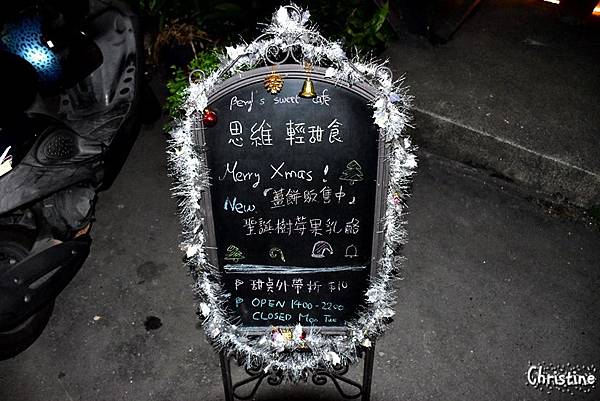 sweet cafe
思維 輕甜食
Merry Xmas !
New 「薑餅販售中」
聖誕樹莓果乳酪
甜桌外帶折 $10
OPEN 1400-2200
CLOSED Mon Tue
Christine